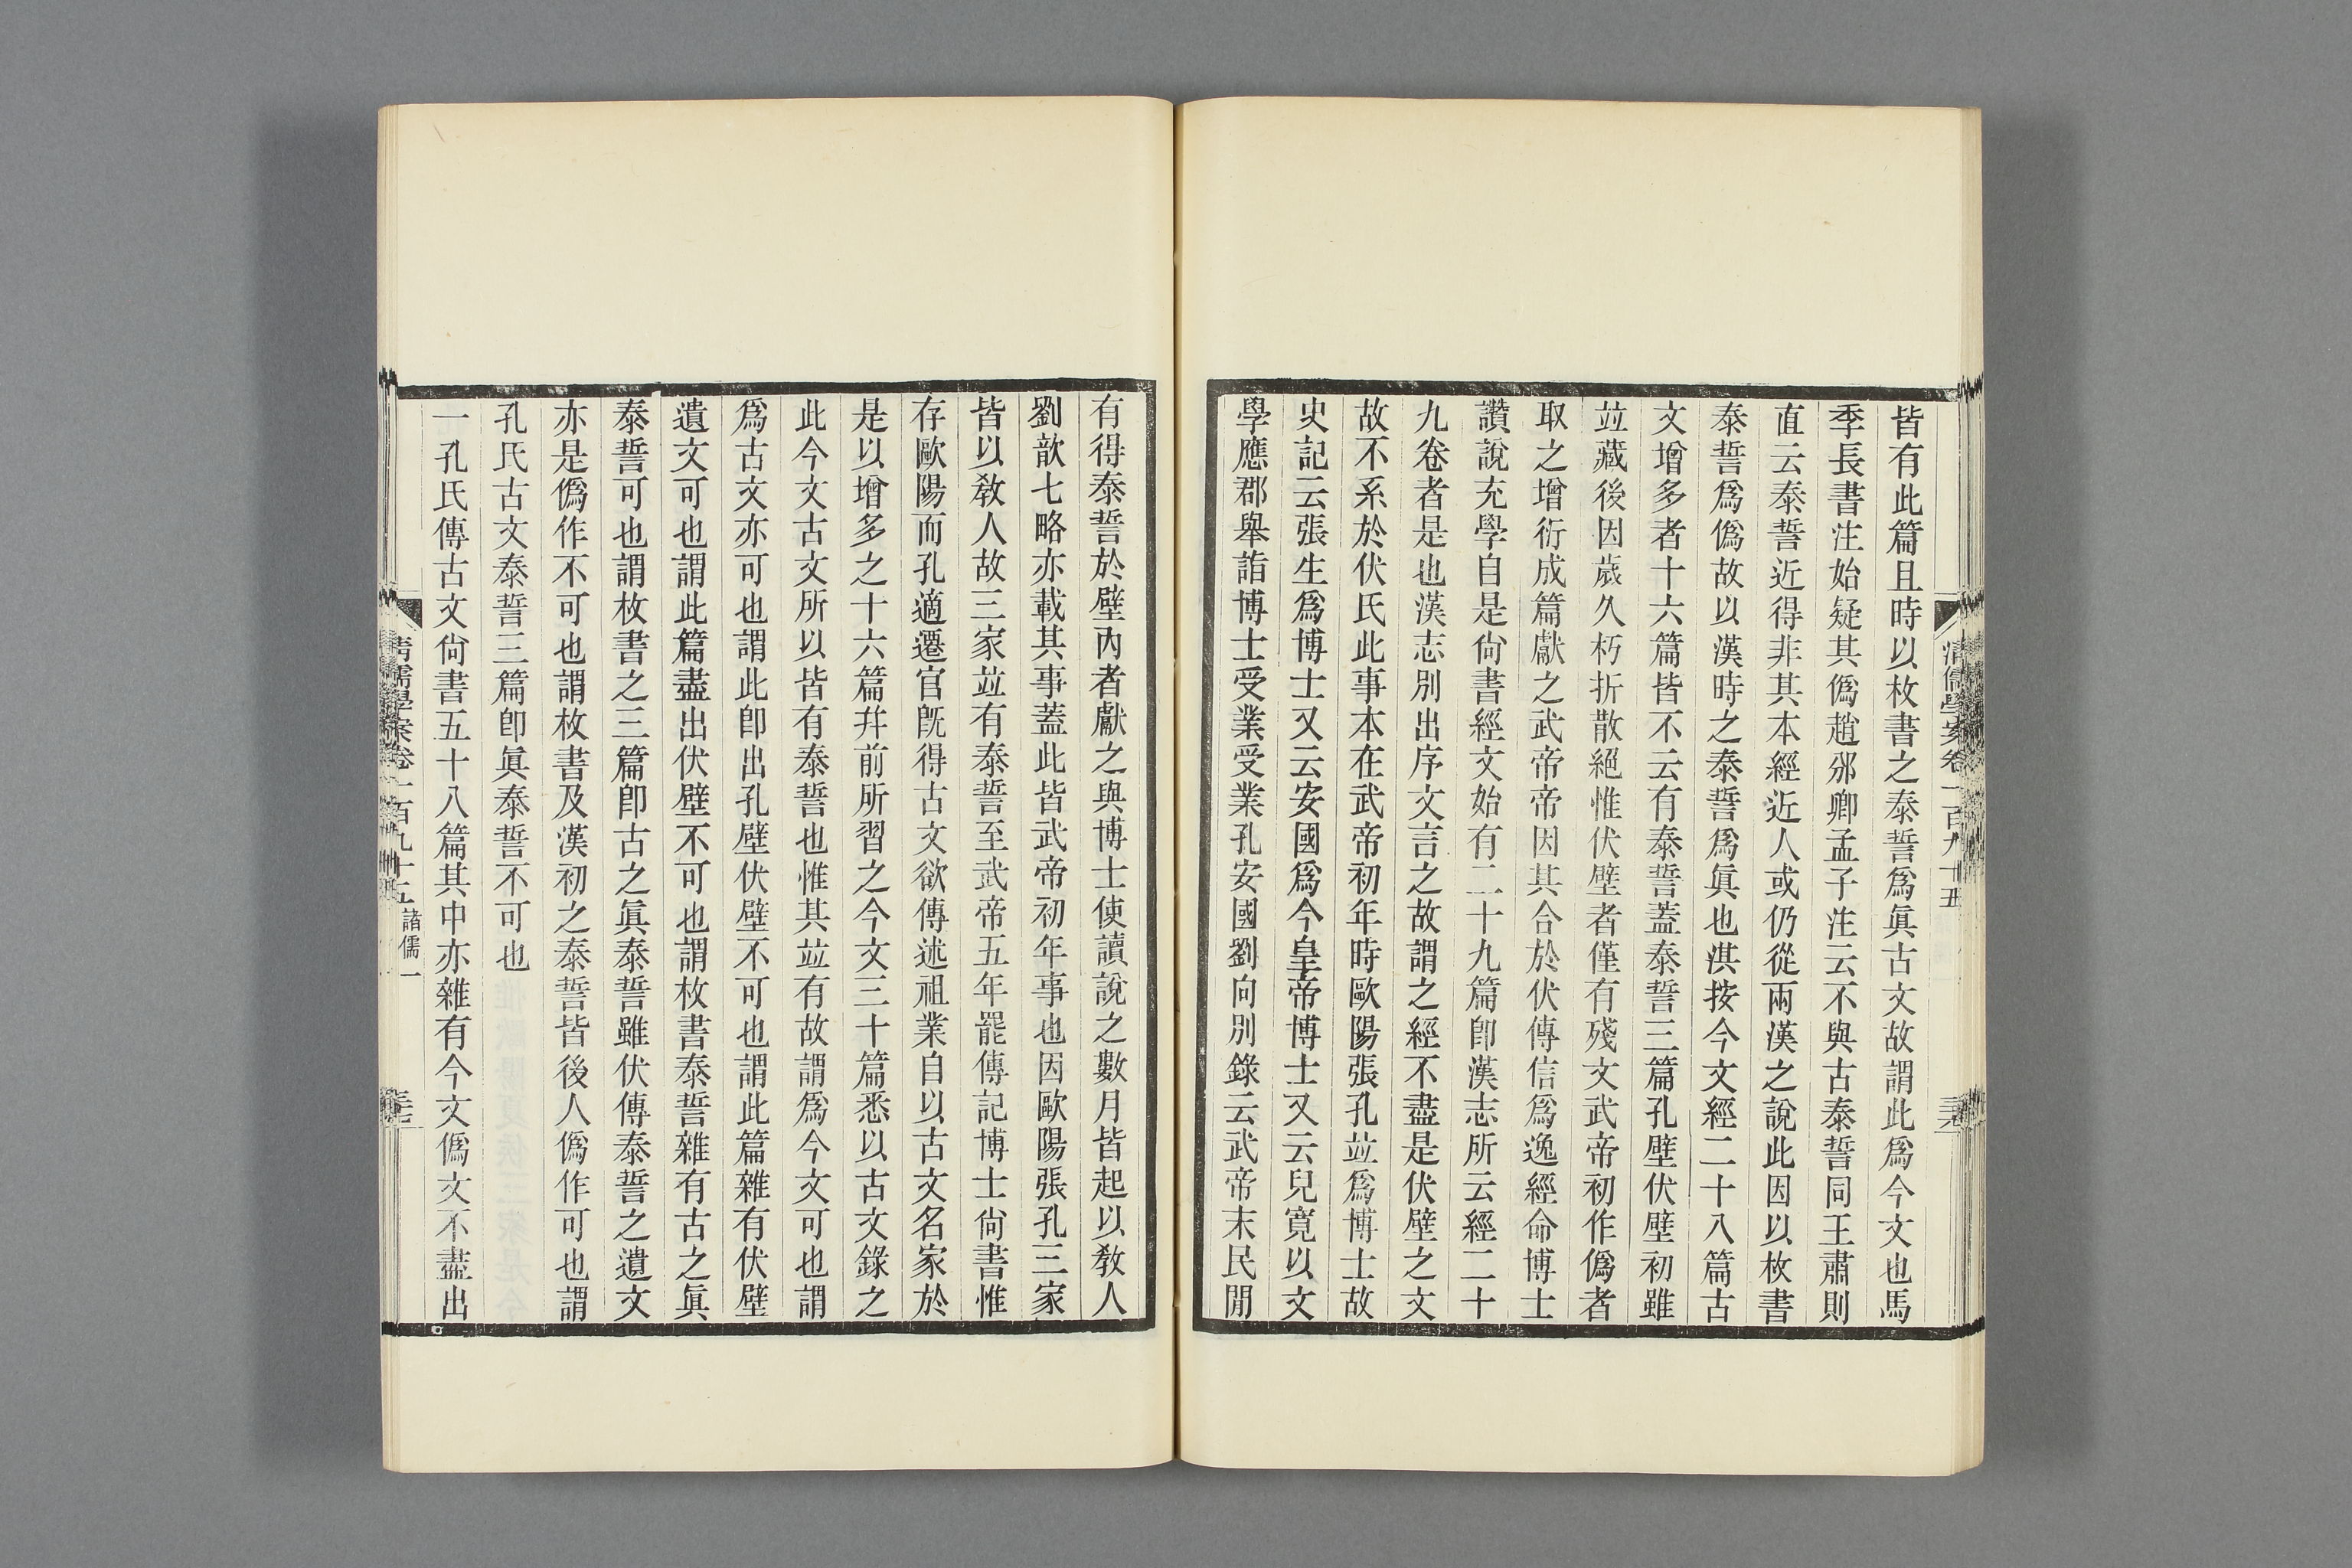 清儒學案卷一百九十五
皆有此篇且時以枚書之泰誓爲眞古文故謂此爲今文也馬
季長書注始疑其僞趙邠卿孟子注云不與古泰誓同王肅則
直云泰誓近得非其本經近人或仍從兩漢之說此因以枚書
泰誓爲僞故以漢時之泰誓爲眞也淇按今文經二十八篇古
文增多者十六篇皆不云有泰誓蓋泰誓三篇孔壁伏壁初雖
竝藏後因歲久朽折散絕惟伏壁者僅有殘文武帝初作僞者
取之增衍成篇獻之武帝帝因其合於伏傳信爲逸經命博士
讚說充學自是尙書經文始有二十九篇卽漢志所云經二十
九卷者是也漢志別出序文言之故謂之經不盡是伏壁之文
故不系於伏氏此事本在武帝初年時歐陽張孔竝爲博士故
史記云張生爲博士又云安國爲今皇帝博士又云兒寬以文
學應郡舉詣博士受業受業孔安國劉向別錄云武帝末民閒
有得泰誓於壁內者獻之與博士使讀說之數月皆起以敎人
劉歆七略亦載其事蓋此皆武帝初年事也因歐陽張孔三家
皆以敎人故三家竝有泰誓至武帝五年罷傳記博士尙書惟
存歐陽而孔適遷官旣得古文欲傳述祖業自以古文名家於
是以增多之十六篇幷前所習之今文三十篇悉以古文錄之
此今文古文所以皆有泰誓也惟其竝有故謂爲今文可也謂
爲古文亦可也謂此卽出孔壁伏壁不可也謂此篇雜有伏壁
遺文可也謂此篇盡出伏壁不可也謂枚書泰誓雜有古之眞
泰誓可也謂枚書之三篇卽古之眞泰誓雖伏傳泰誓之遺文
亦是僞作不可也謂枚書及漢初之泰誓皆後人僞作可也謂
孔氏古文泰誓三篇卽眞泰誓不可也
一孔氏傳古文尙書五十八篇其中亦雜有今文僞文不盡出
清儒學案卷一百九十五 諸儒一